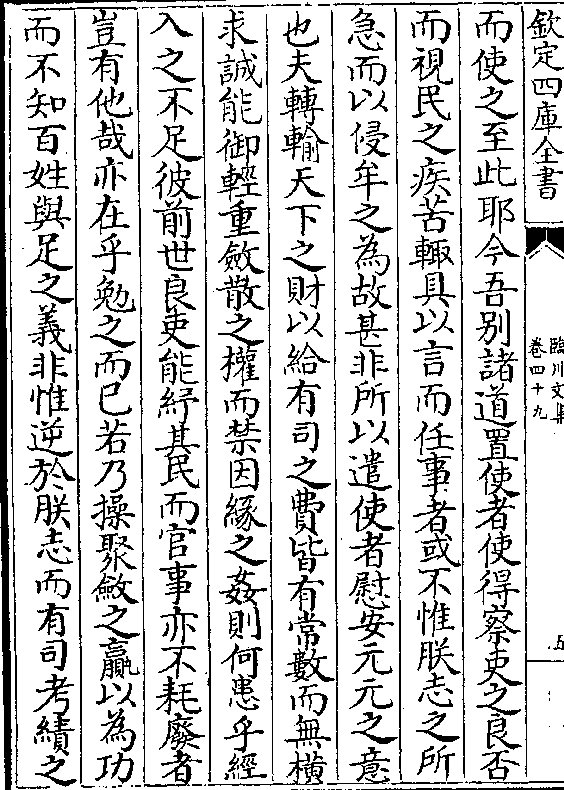 欽定四庫全書
臨川文集
卷四十九
五
而使之至此耶今吾別諸道置使者使得察吏之良否
而視民之疾苦輙具以言而任事者或不惟朕志之所
急而以侵牟之為故甚非所以遣使者慰安元元之意
也夫轉輸天下之財以給有司之費皆有常數而無横
求誠能御輕重斂散之權而禁因緣之姦則何患乎經
入之不足彼前世良吏能紓其民而官事亦不耗廢者
豈有他哉亦在乎勉之而已若乃操聚斂之贏以為功
而不知百姓與足之義非惟逆於朕志而有司考績之